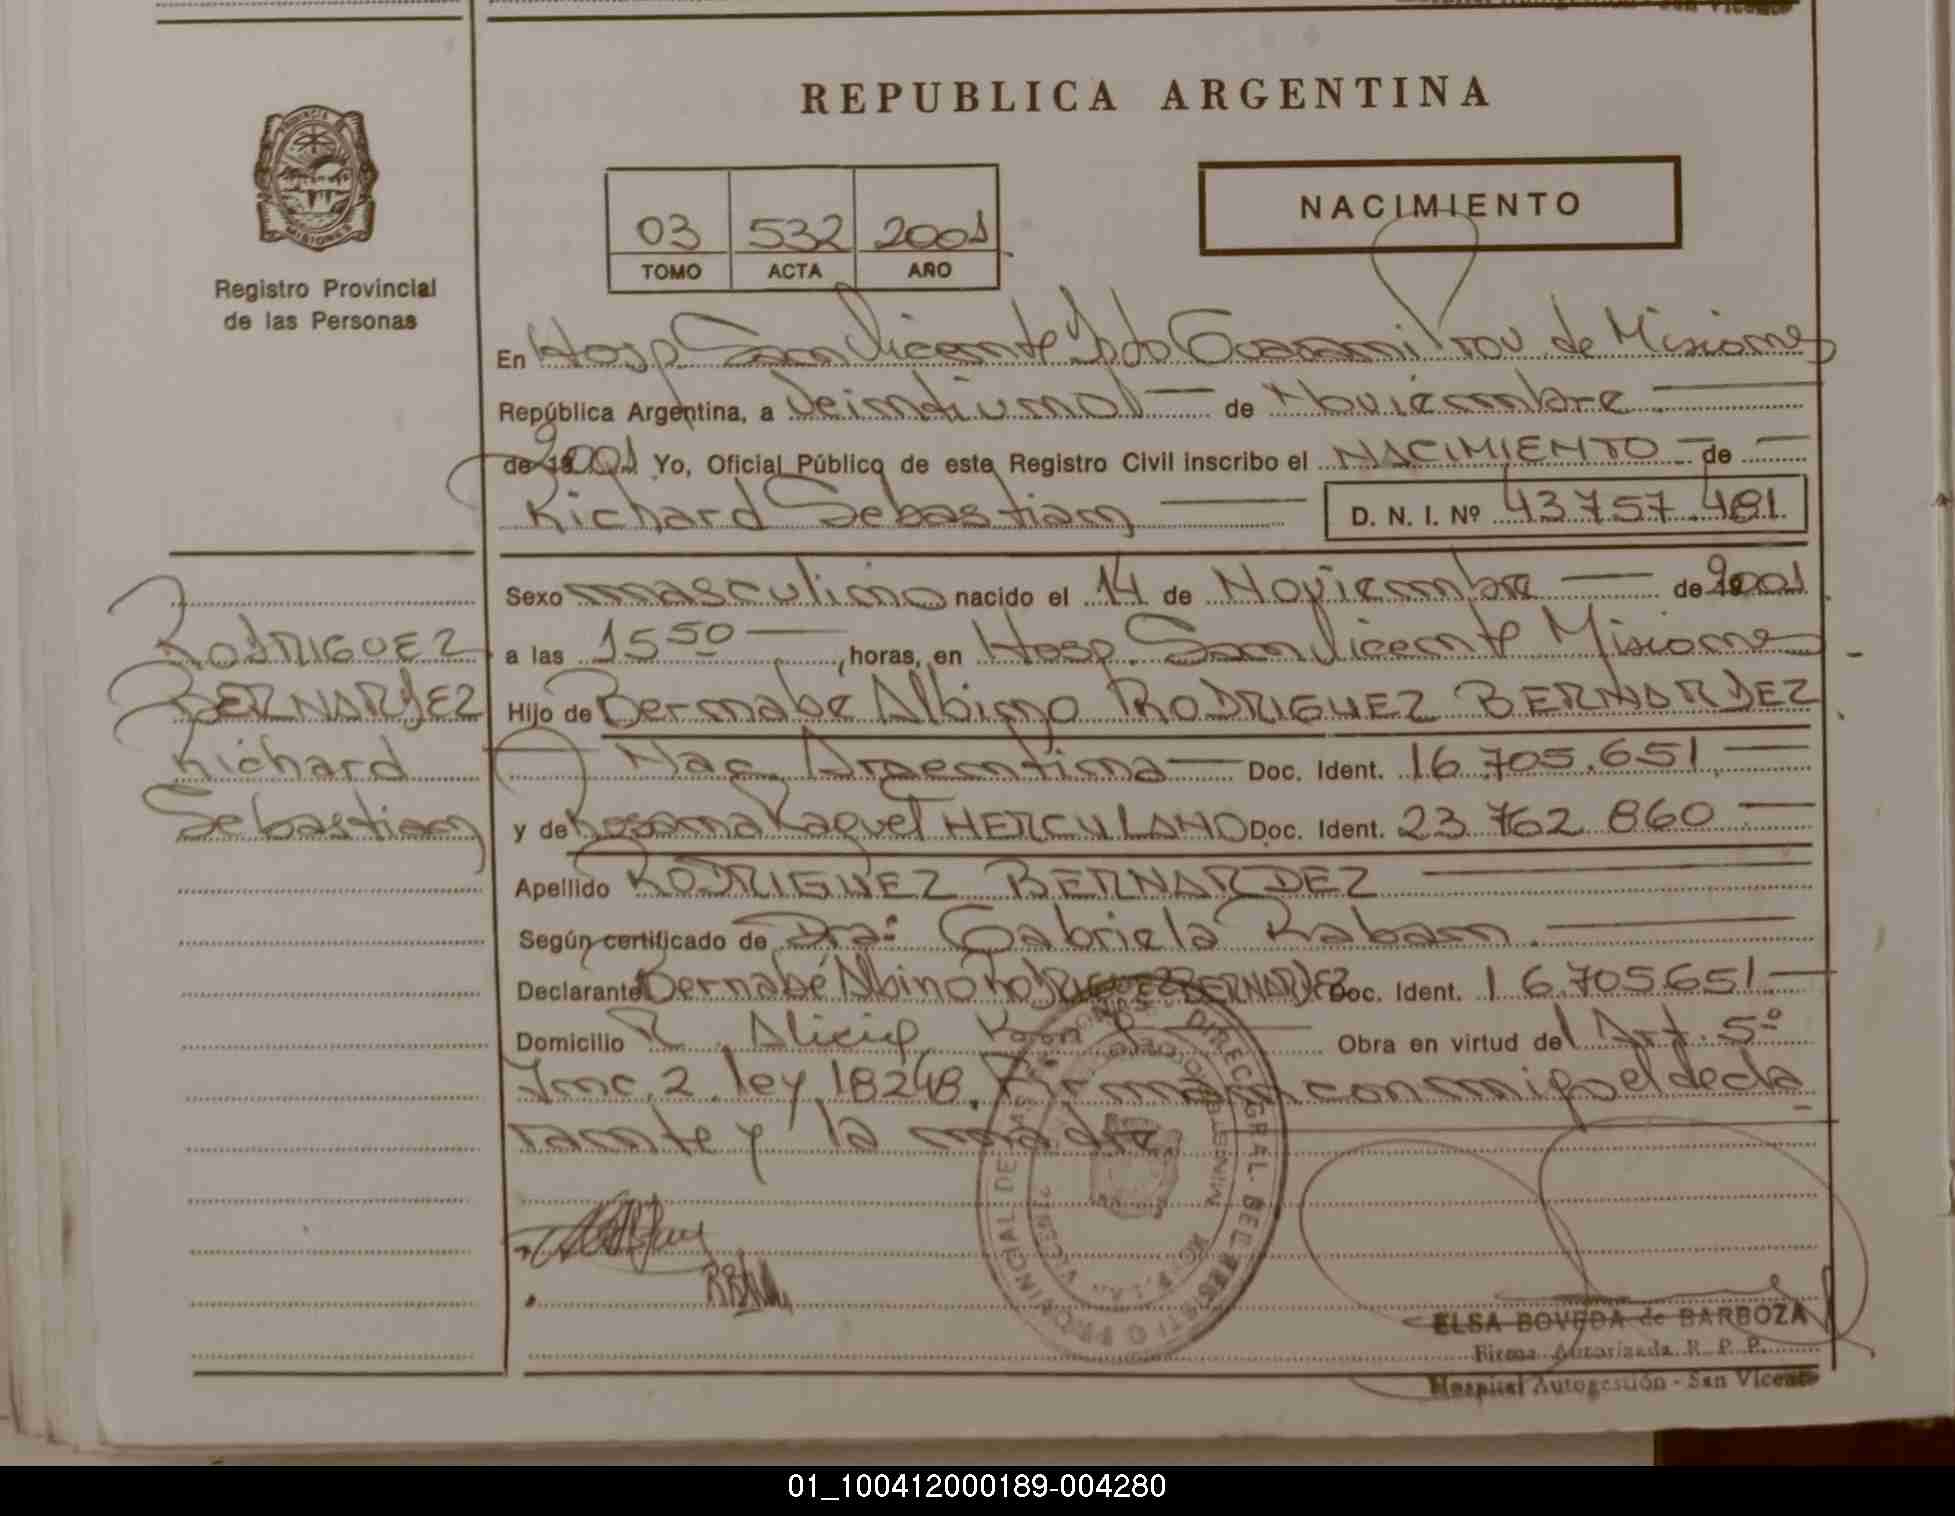 San Vicente
REPUBLICA ARGENTINA
PROVINCIA
MISIONES
Registro Provincial
de las Personas
03 532 2001
TOMO ACTA AÑO
NACIMIENTO
En Hosp San Vicente Dpto Guarani Prov de Misiones
República Argentina, a Veintiuno de Noviembre
de 2001 Yo, Oficial Público de este Registro Civil inscribo el NACIMIENTO de
Richard Sebastian D. N. I. Nº 43757.481
Sexo masculino nacido el 14 de Noviembre de 2001
a las 15 50 horas, en Hosp. San Vicente Misiones
Hijo de Bernabé Albino RODRIGUEZ BERNARDEZ
Nac. Argentina Doc. Ident. 16.705.651
y de Rosana Raquel HERCULANO Doc. Ident. 23 762 860
Apellido RODRIGUEZ BERNARDEZ
Según certificado de Dra: Gabriela Raban.
Declarante Bernabé Albino RODRIGUEZ BERNARDEZ Doc. Ident. 16.705651
Domicilio Alicia Obra en virtud del Art. 5º
Inc. 2 ley 18248. Firman conmigo el decla
rante y la madre
RODRIGUEZ
BERNARDEZ
Richard
Sebastian
ELSA BOVEDA de BARBOZA
Firma Autorizada R. P. P.
Hospital Autogestión - San Vicente
01_100412000189-004280